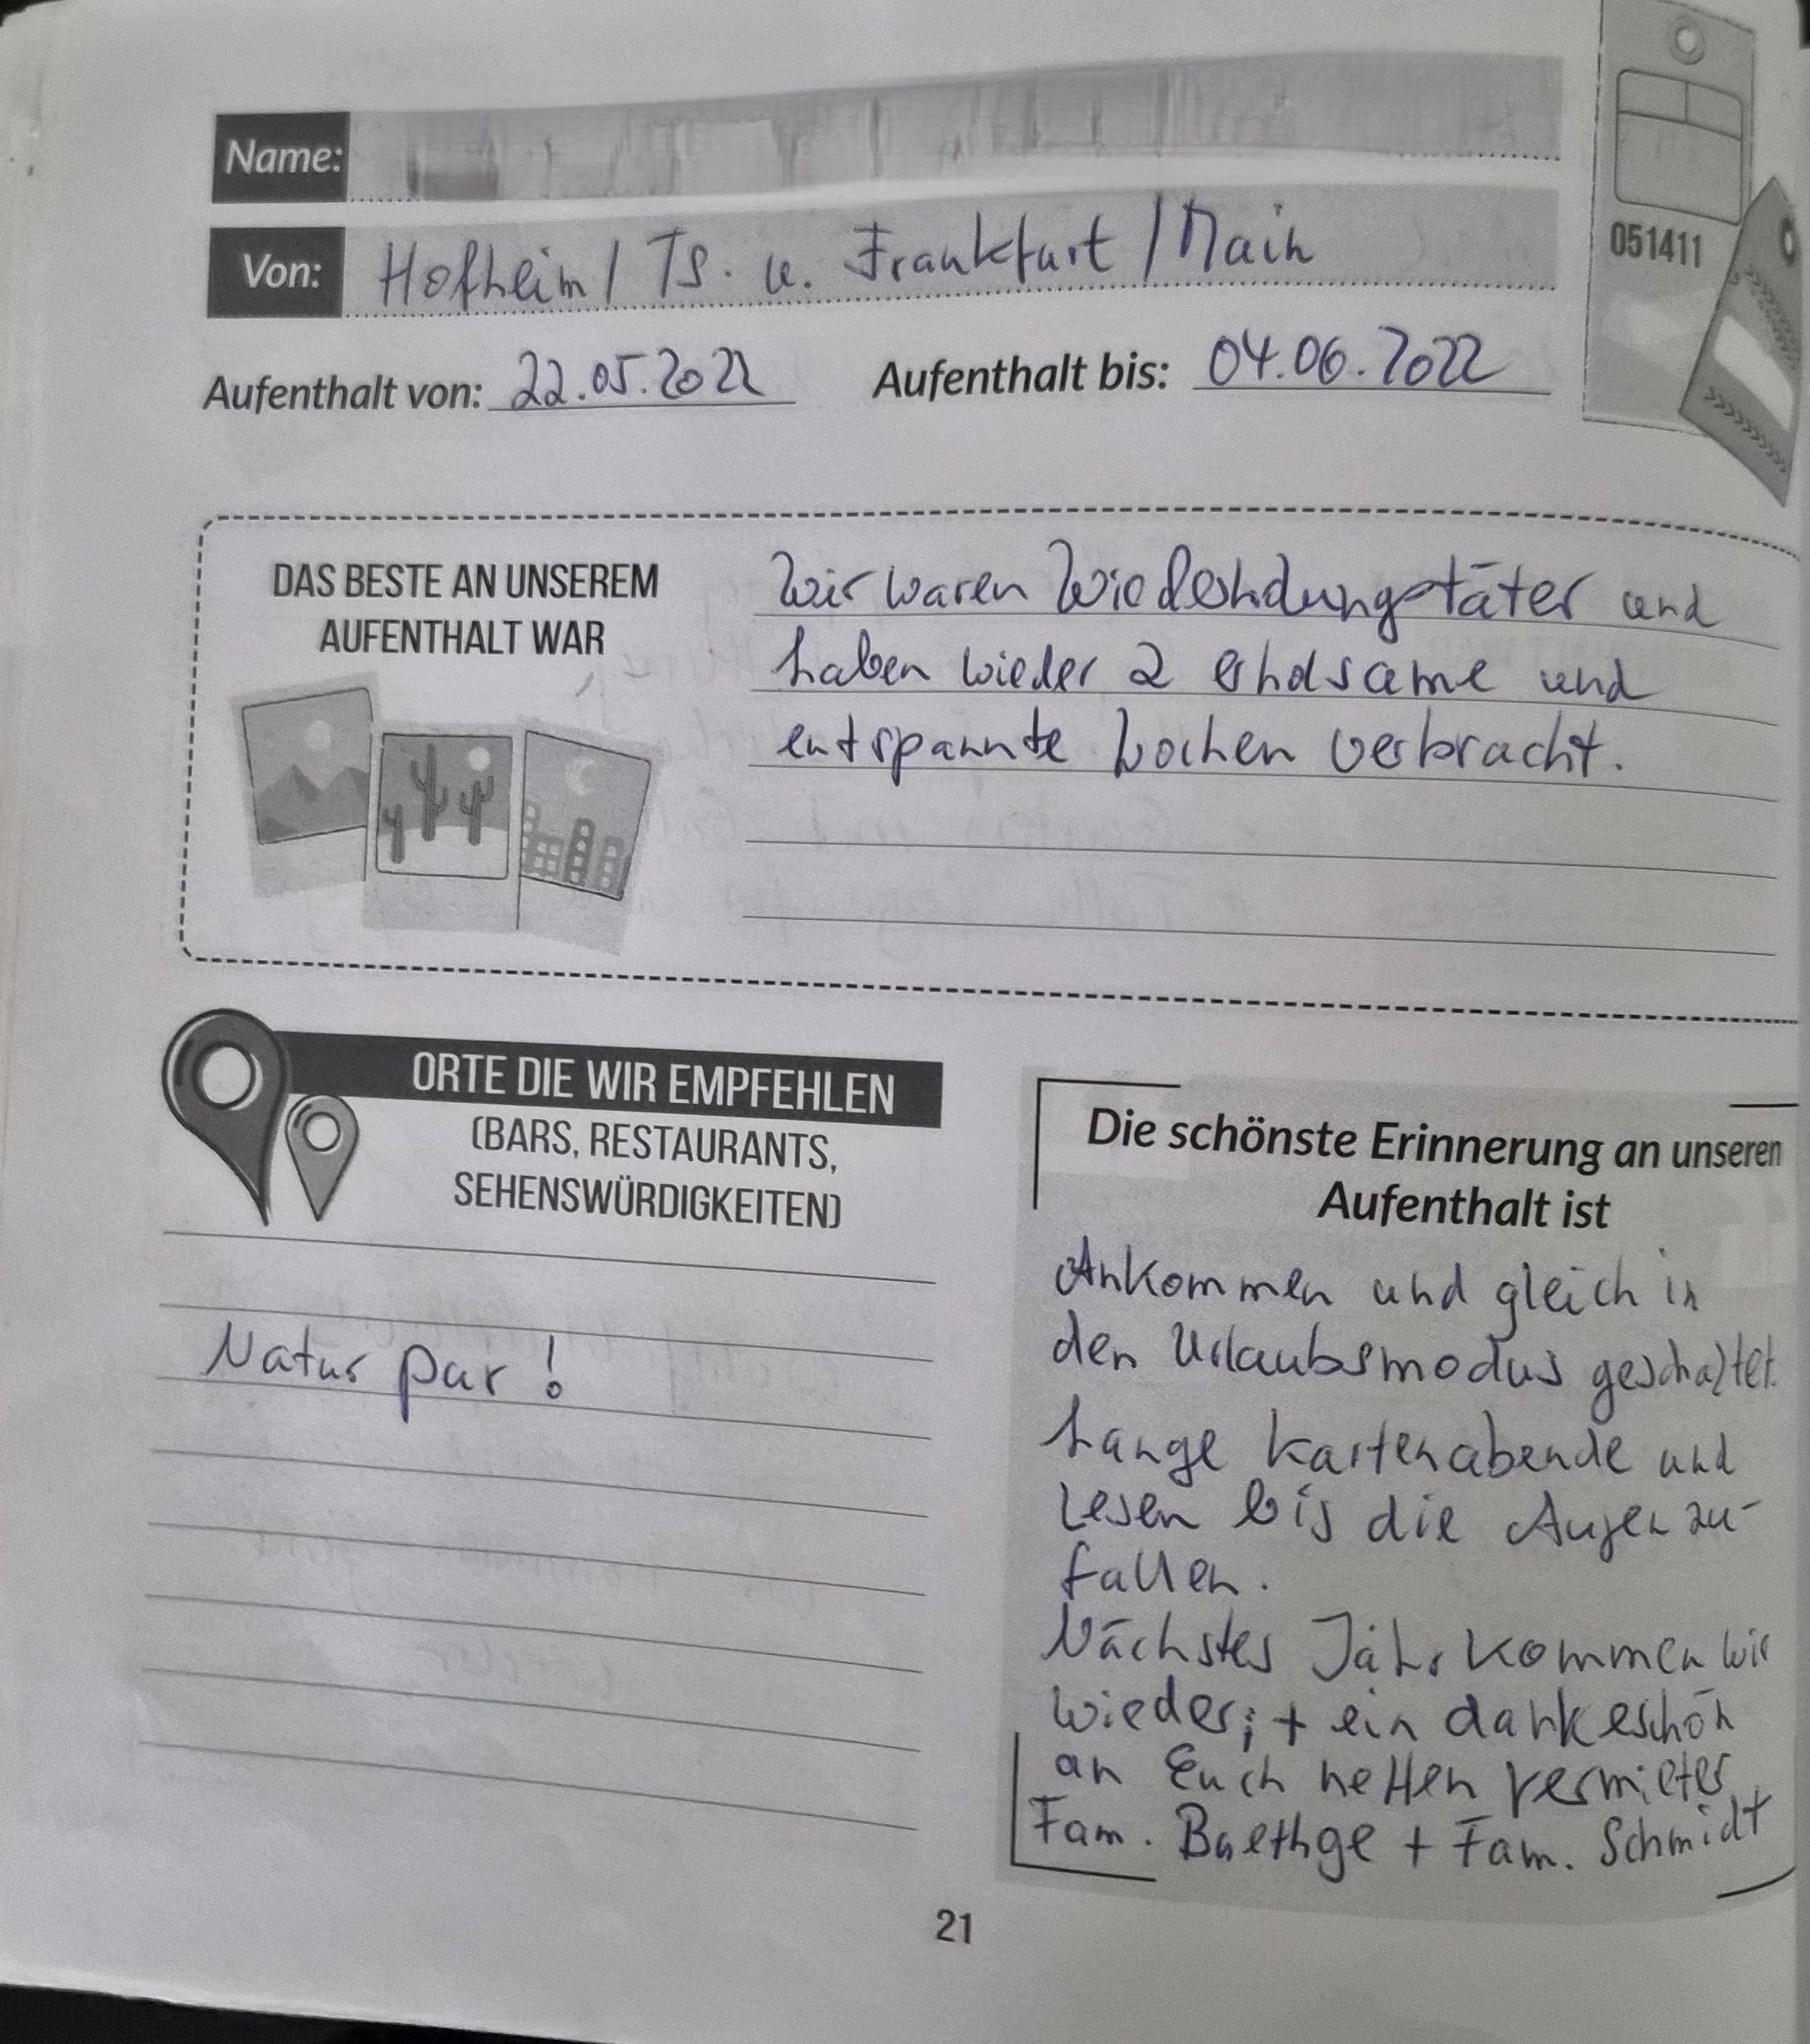 Name:
Von: Hofheim / Ts. u. Frankfurt / Main
051411
Aufenthalt von: 22.05.2022 Aufenthalt bis: 04.06.2022
DAS BESTE AN UNSEREM
AUFENTHALT WAR
Wir waren Wiederholungstäter und
haben wieder 2 erholsame und
entspannte Wochen verbracht.
ORTE DIE WIR EMPFEHLEN
(BARS, RESTAURANTS,
SEHENSWÜRDIGKEITEN)
Natur pur!
Die schönste Erinnerung an unseren
Aufenthalt ist
Ankommen und gleich in
den Urlaubsmodus geschaltet.
Lange Kartenabende und
Lesen bis die Augen zu-
fallen.
Nächstes Jahr kommen wir
wieder; + ein dankeschön
an Euch netten Vermieter
Fam. Baethge + Fam. Schmidt
21